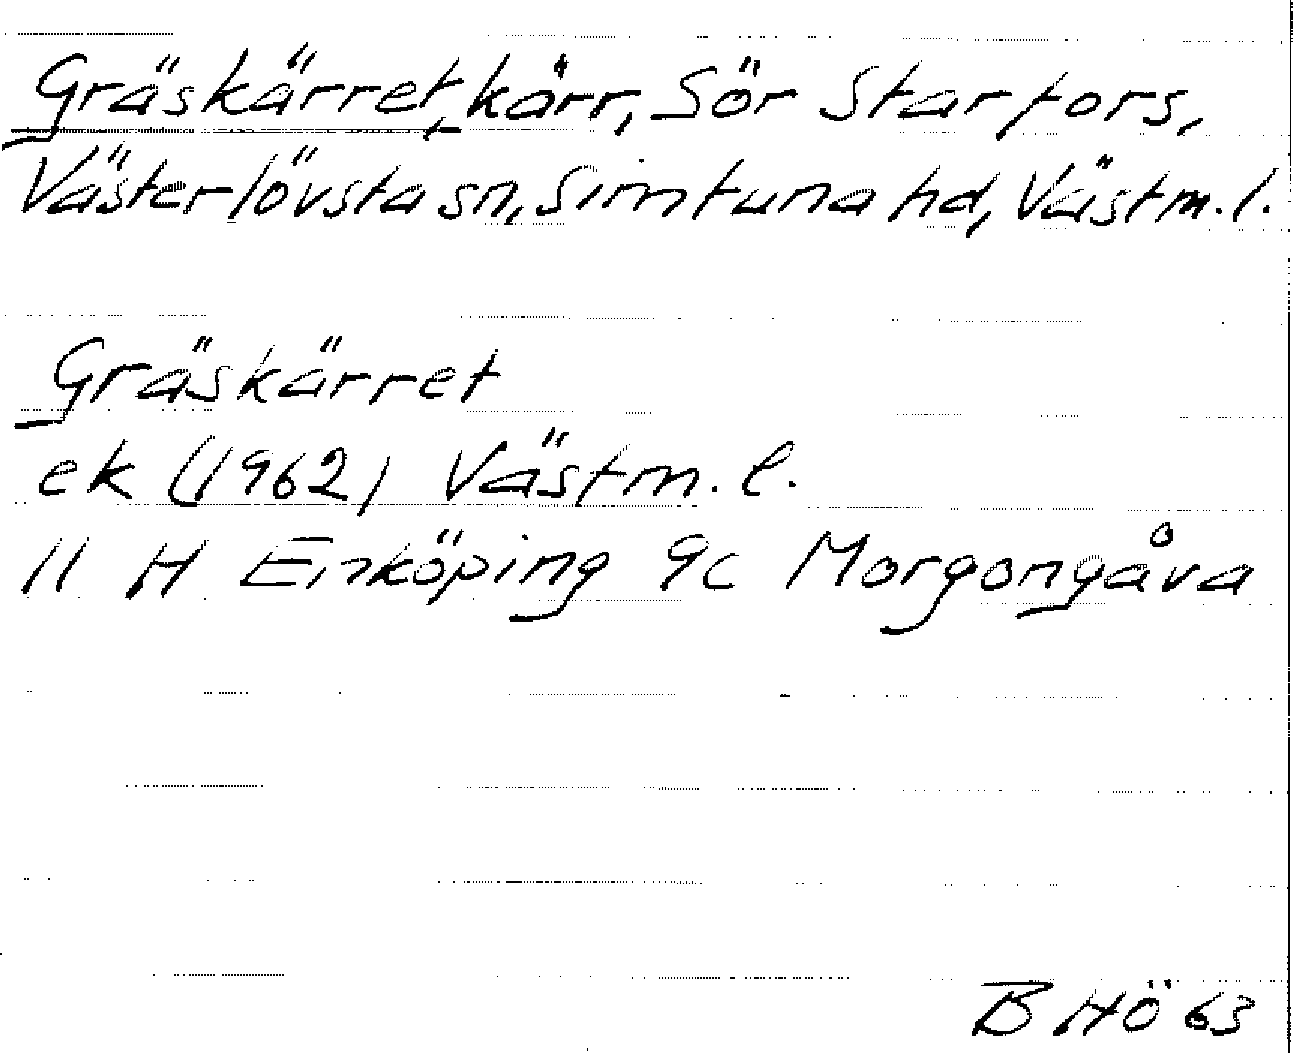 Gräskärret, kärr, Sör Starfors,
Västerlövsta sn, Simtuna hd, Västm. l.
Gräskärret
ek (1962) Västm. l.
11 H Enköping 9c Morgongåva
B Hö 63